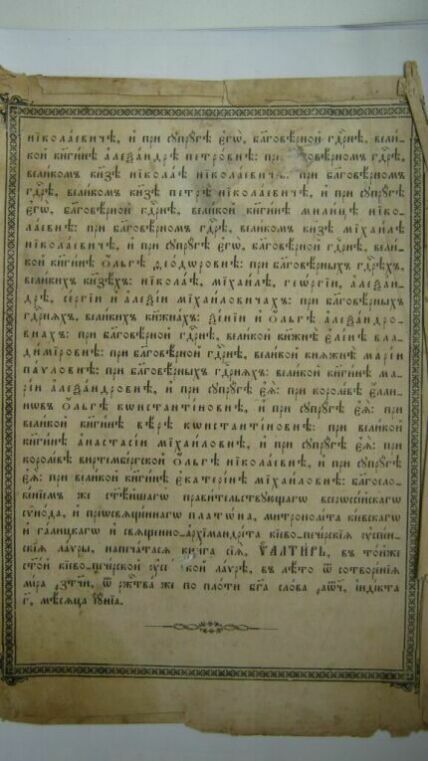 нїкола́евичѣ, и҆ при сꙋпрꙋ́гѣ є҆гѡ̀, бл҃говѣ́рной гдⷭ҇рнѣ, вели́-
кой кн҃ги́нѣ а҆леѯа́ндрѣ петро́внѣ: при вѣ́рномъ гдⷭ҇рѣ,
вели́комъ кн҃зѣ нїкола́ѣ нїкола́евичѣ: при бл҃говѣ́рномъ
гдⷭ҇рѣ, вели́комъ кн҃зѣ петрѣ̀ нїкола́евичѣ, и҆ при сꙋпрꙋ́гѣ
є҆гѡ̀, бл҃говѣ́рной гдⷭ҇рнѣ, вели́кой кн҃ги́нѣ мили́цѣ нїко-
ла́евнѣ: при бл҃говѣ́рномъ гдⷭ҇рѣ, вели́комъ кн҃зѣ мїхаи́лѣ
нїкола́евичѣ, и҆ при сꙋпрꙋ́гѣ є҆гѡ̀, бл҃говѣ́рной гдⷭ҇рнѣ, вели́-
кой кн҃ги́нѣ ѻ҆́льгѣ ѳео́дѡровнѣ: при бл҃говѣ́рныхъ гдⷭ҇рѣхъ,
вели́кихъ кн҃зѣхъ: нїкола́ѣ, мїхаи́лѣ, геѡ́ргїи, а҆леѯа́н-
дрѣ, се́ргїи и҆ а҆леѯі́и мїха́йловичахъ: при бл҃говѣ́рныхъ
гдⷭ҇рняхъ, вели́кихъ кн҃жна́хъ: ѯе́нїи и҆ ѻ҆́льгѣ а҆леѯа́ндро-
внахъ: при бл҃говѣ́рной гдⷭ҇рнѣ, вели́кой кн҃жнѣ̀ є҆ле́нѣ вла-
ди́мїровнѣ: при бл҃говѣ́рной гдⷭ҇рнѣ, вели́кой княжнѣ̀ марі́и
па́ѵловнѣ: при бл҃говѣ́рныхъ гдⷭ҇рняхъ: вели́кой кн҃ги́нѣ ма-
рі́и а҆леѯа́ндровнѣ, и҆ при сꙋпрꙋ́гѣ є҆ѧ̀: при короле́вѣ є҆́лли-
нѡвъ ѻ҆́льгѣ кѡнстанті́новнѣ, и҆ при сꙋпрꙋ́гѣ є҆ѧ̀: при
вели́кой кн҃ги́нѣ вѣ́рѣ кѡнстанті́новнѣ: при вели́кой
кн҃ги́нѣ а҆настасі́и мїха́йловнѣ, и҆ при сꙋпрꙋ́гѣ є҆ѧ̀: при
короле́вѣ виртембе́ргской ѻ҆́льгѣ нїкола́евнѣ, и҆ при сꙋпрꙋ́гѣ
є҆ѧ̀: при вели́кой кн҃ги́нѣ є҆катері́нѣ мїха́йловнѣ: бл҃гослове́-
нїемъ же ст҃ѣ́йшагѡ прави́тельствꙋющагѡ всерѡссі́йскагѡ
сѷно́да, и҆ прео҆сщ҃е́ннагѡ плато́на, митрополі́та кі́евскагѡ
и҆ га́лицкагѡ и҆ сщ҃е́нно-а҆рхїмандрі́та кі́ево-пече́рскїѧ ᲂу҆спе́н-
скїѧ ла́ѵры, напеча́тасѧ кни́га сїѧ̀, ѰАЛТИ́РЬ, въ то́йже
ст҃о́й кі́ево-пече́рской ᲂу҆спе́нской ла́ѵрѣ, въ лѣ́то ѿ сотворе́нїѧ
мі́ра ҂зтч҃и, ѿ ржⷭ҇тва́ же по пло́ти бг҃а сло́ва ҂аѡ҃ч, і҆ндї́кта
г҃, мѣ́сѧца і҆ꙋ́нїа.